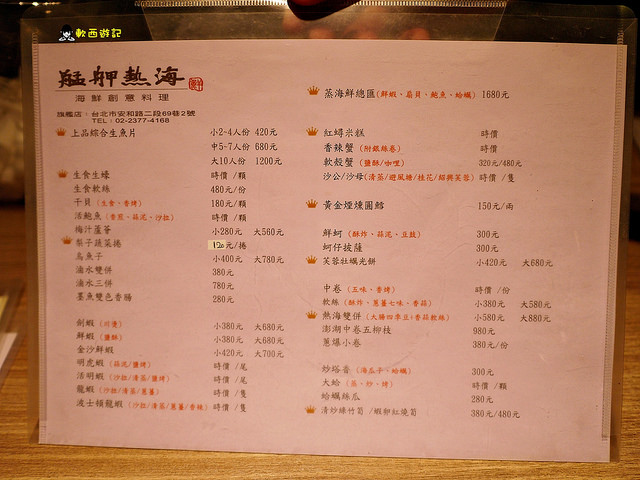 軟西遊記
艋舺熱海
海鮮創意料理
旗艦店：台北市安和路二段69巷2號
TEL：02-2377-4168
上品綜合生魚片 小2-4人份 420元
中5-7人份 680元
大10人份 1200元
生食生蠔 時價 /顆
生食軟絲 480元/份
干貝(生食、香烤) 180元/顆
活鮑魚(香煎、蒜泥、沙拉) 時價 /顆
梅汁蘆筍 小280元 大560元
梨子蔬菜捲 120元/捲
烏魚子 小400元 大780元
滷水雙併 380元
滷水三併 780元
墨魚雙色香腸 280元
劍蝦(川燙) 小380元 大680元
鮮蝦(鹽酥) 小380元 大680元
金沙鮮蝦 小420元 大700元
明虎蝦(蒜泥/鹽烤) 時價 /尾
活明蝦(沙拉/清蒸/鹽烤) 時價 /尾
龍蝦(沙拉/清蒸/蔥薑) 時價 /隻
波士頓龍蝦(沙拉/清蒸/蔥薑/香辣) 時價 /隻
蒸海鮮總匯(鮮蝦、扇貝、鮑魚、蛤蠣) 1680元
紅蟳米糕 時價
香辣蟹(附銀絲卷) 時價
軟殼蟹(鹽酥/咖哩) 320元/480元
沙公/沙母(清蒸/避風塘/桂花/紹興芙蓉) 時價 /隻
黃金煙燻圓鱈 150元/兩
鮮蚵(酥炸、蒜泥、豆豉) 300元
蚵仔披薩 300元
芙蓉牡蠣光餅 小420元 大680元
中卷(五味、香烤) 時價 /份
軟絲(酥炸、蔥薑七味、香蒜) 小380元 大580元
熱海雙併(大腸四季豆+香蒜軟絲) 小580元 大880元
澎湖中卷五柳枝 980元
蔥爆小卷 380元/份
炒塔香(海瓜子、蛤蠣) 300元
大蛤(蒸、炒、烤) 時價 /顆
蛤蠣絲瓜 280元
清炒綠竹筍 /蝦卵紅燒筍 380元/480元